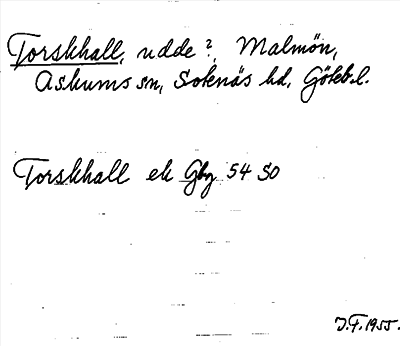 Torskhall, udde?, Malmön,
Askums sn, Sotenäs hd, Götebl.
Torskhall ek Gbg 54 SO
J.F. 1955.